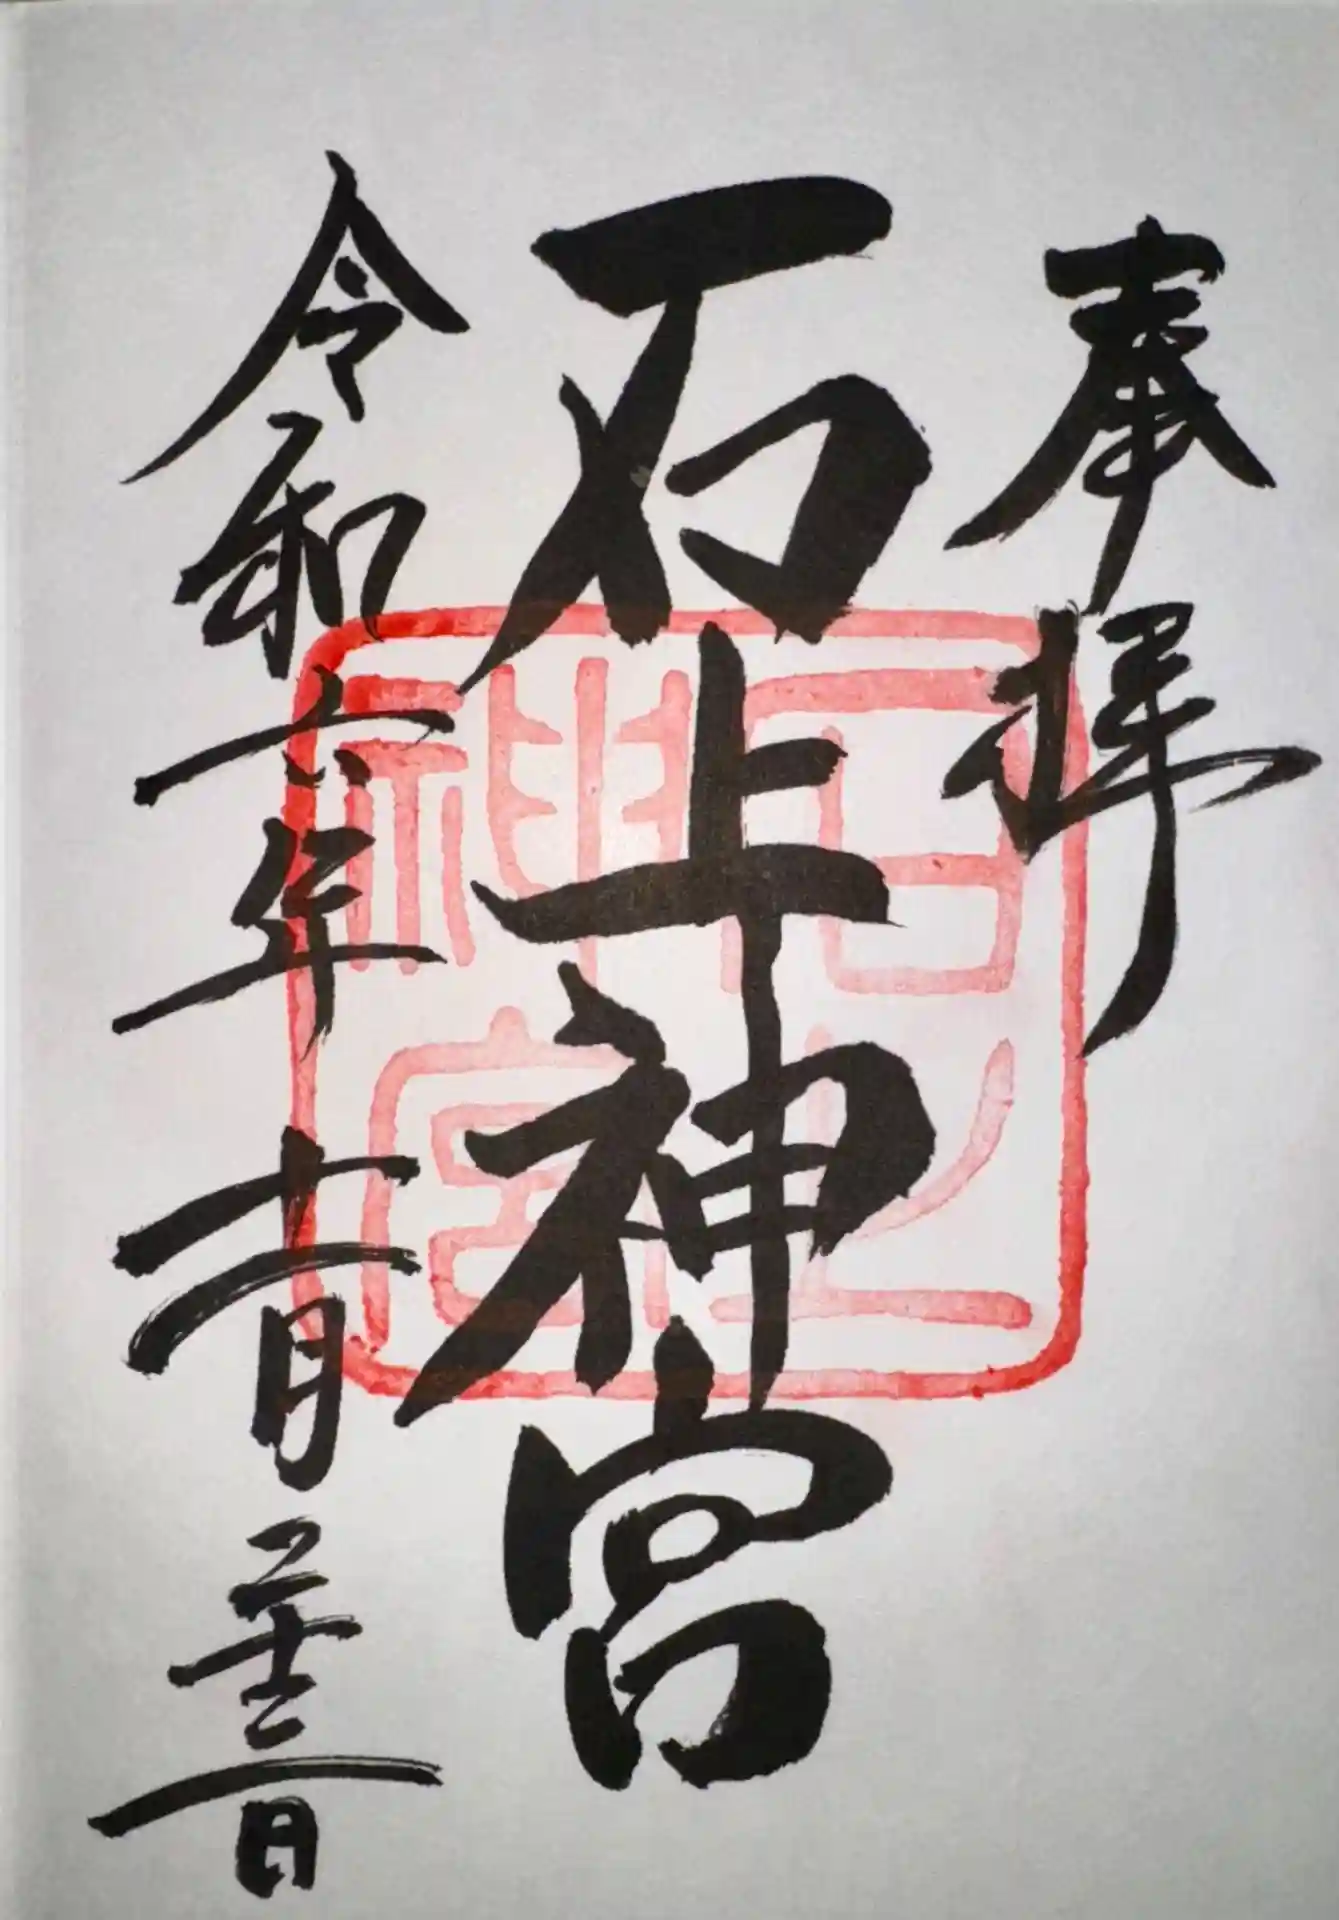 奉拝
石上神宮
令和六年十一月二十三日
石上
神宮